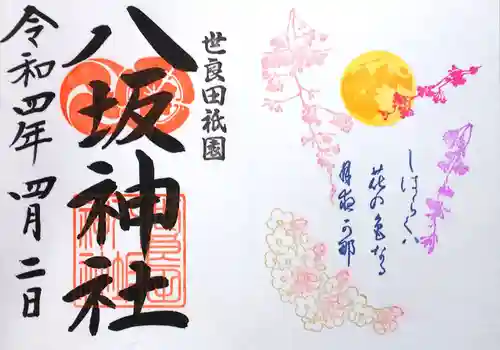 世良田祇園
八坂神社
令和四年 四月二日
しはらくハ
花の色なる
月夜可那